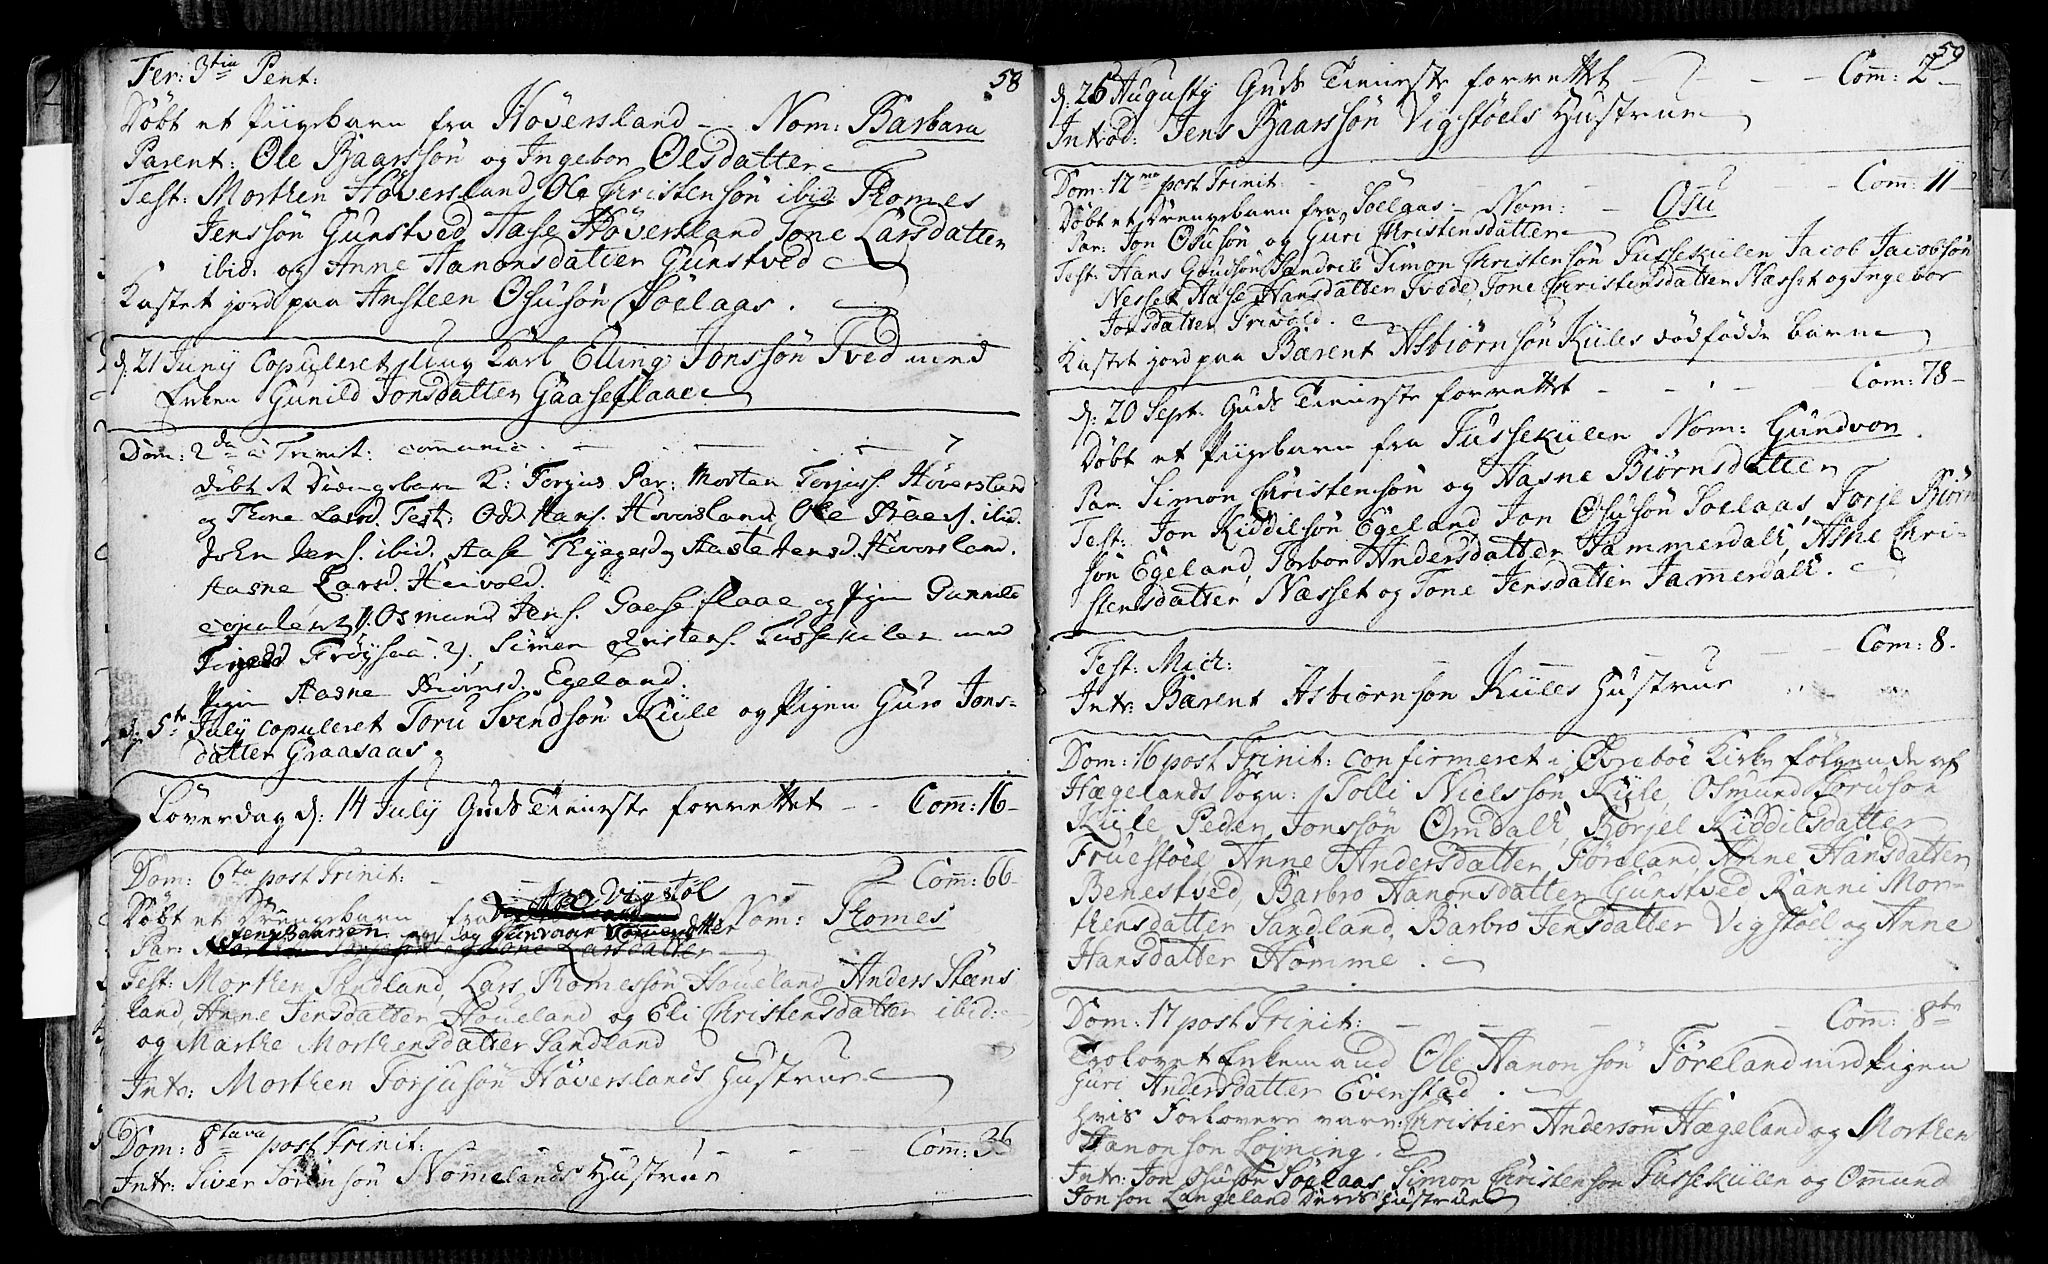 58
Fer: 3tia Pent:
Döbt et Piigebarn fra Höversland - - Nom: Barbara
Parent: Ole Baarssön og Ingebor Olsdatter
Test: Morthen Höversland Ole Christensön ibid: Thomes
Jenssön Gunstved Aase Höversland Tone Larsdatter
ibid: og Anne Hanonsdatter Gunstved
Kastet jord paa Ansteen Osusön Söelaas.
d: 21 Junij Copuleret Ung Karl Elling Jonssön Tved med
Enken Gunild Jonsdatter Gaaseflaae
Dom: 2da à Trinit: communic: - - - 7
döbt et Drengebarn N: Torjus Par: Morten Torjuss. Höversland
og Thone Larsd. Test: Odd Hans. Höversland, Ole Baers. ibid.
Jens. ibid. Aase Tryegesd og Aaste Jensd. Höversland.
Aasne Larsd. Heivold.
copuleret 1. Osmund Jens. Gaaseflaae og Pigen Gunnild
Frøysaa. 2). Simen Christens. Tussekulen med
Pigen Aasne Biörnsd. Egeland.
d: 5te Julij copuleret Toru Svendsön Kiile og Pigen Guro Jons-
datter Graasaas
Löverdag d: 14 Julij Guds Tieneste forrettet - - Com: 16 -
Dom: 6ta post Trinit: - - - Com: 66 -
Döbt et Drengebarn fra Vigstöl Nom: Thomes
Par: Jens Baarsen og Gunvaar
Test: Morthen Sandland, Lars Thomessön Houeland Anders Steens
land, Anne Jensdatter Houeland og Eli Christensdatter ibid:
og Marthe Morthensdatter Sandland
Intr: Morthen Torjusön Höverslands Hustrue.
Dom: 8tava post Trinit: - - - Com: 36
Intr: Siver Sörensön Nomelands Hustrue
59
d: 26 Augustij Guds Tieneste forrettet - - - Com: 2 -
Introd: Jens Baarssön Vigstöels Hustrue
Dom: 12ma post Trinit: - - - Com: 11 -
Döbt et Drengebarn fra Söelaas - Nom: - Osu
Par: Jon Osusön og Guri Christensdatter
Test: Hans Goudsön Sandrib Simon Christensön Tussekulen Jacob Jacobsön
Nesset Aase Hansdatter Tvede, Tone Christensdatter Næsset og Ingebor
Jonsdatter Trivold.
Kastet jord paa Bærent Asbiörnsön Kiiles dödfödde barn
d: 20 Sept: Guds Tieneste forrettet - - - Com: 78 -
Döbt et Piigebarn fra Tussekulen Nom: Gundvor
Par: Simon Christensön og Aasne Biörnsdatter
Test: Jon Kiddilsön Egeland Jon Osusön Söelaas, Torje Biörn
sön Egeland, Torbor Andersdatter Hammerdall, Asne Chri-
stensdatter Næsset og Tone Jensdatter Jammerdall.
Fest: Mich: - - - Com: 8.
Intr: Bærent Asbiörnsön Kiiles Hustrue
Dom: 16 post Trinit: confirmeret i Øvreböe Kirke fölgende af
Hægelands Sogn: Tolli Nielssön Kiile, Osmund Torusön
Kiile, Peder Jonssön Omdall, Borjel Kiddilsdatter
Fruestöel, Anne Andersdatter Föreland, Anne Hansdatter
Benestved, Barbro Hanonsdatter Gunstved Ranni Mor-
thensdatter Sandland, Barbro Jensdatter Vigstöel og Anne
Hansdatter Homme.
Dom: 17 post Trinit: - - - Com: 8te
Troloved Enkemand Ole Hanonsön Föreland med Pigen
Guri Andersdatter Evenstad.
hvis Forlovere vare: Christen Andersön Hægeland og Morthen
Hanonsön Løjning.
Intr: Jon Osusön Söelaas, Simon Christensön Tussekulen og Omund
Jonsön Langeland Deres Hustruer